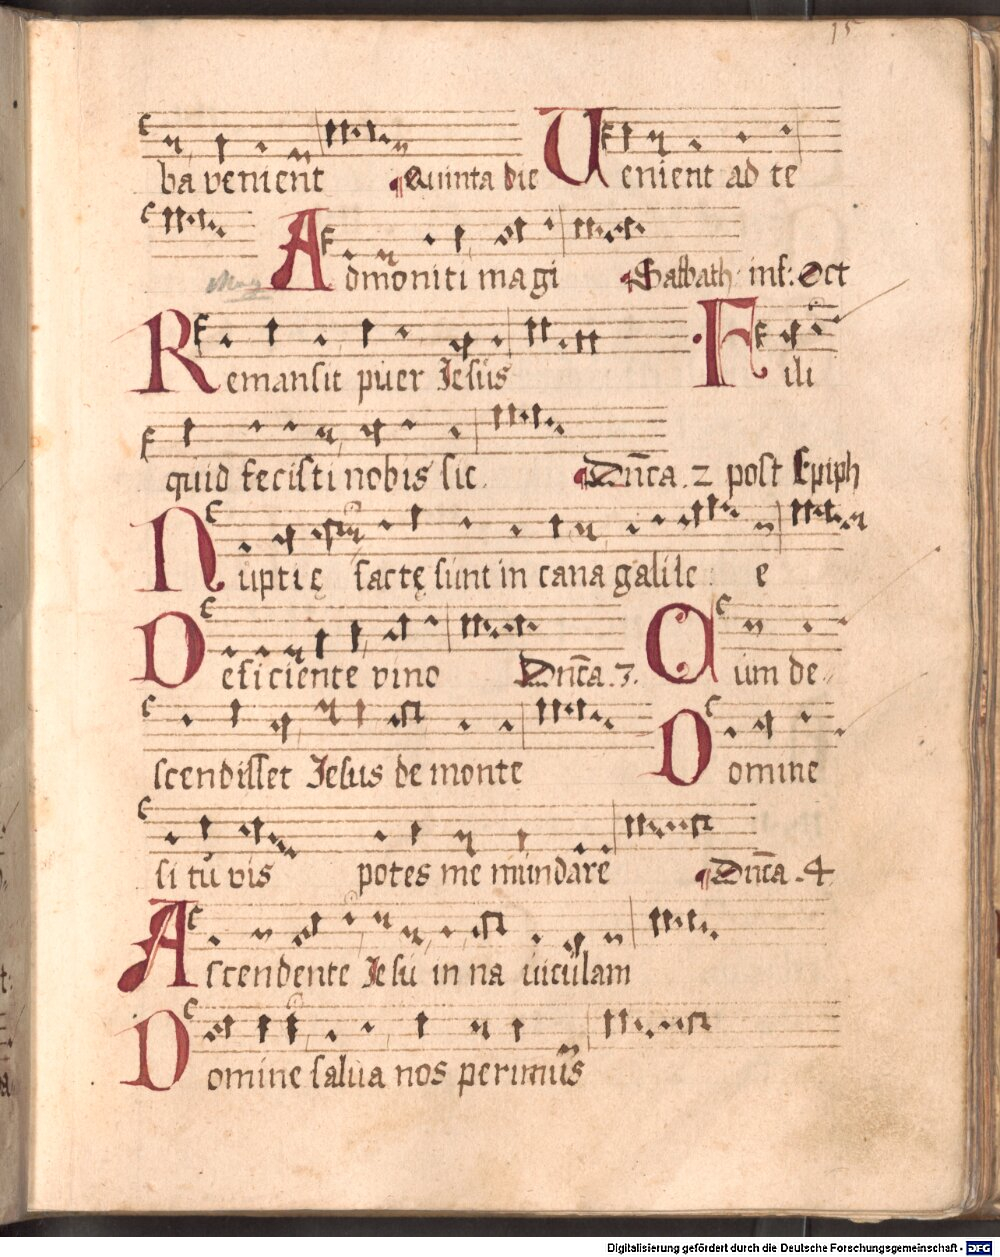 15
ba venient Quinta die Uenient ad te
Admoniti magi Sabbath: inf: Oct
Remansit puer Jesus Fili
quid fecisti nobis sic. Dn̄ca. 2 post Epiph
Nuptię factę sunt in cana galile e
Deficiente vino Dn̄ca. 3. Cum de-
scendisset Jesus de monte Domine
si tu vis potes me mundare Dn̄ca. 4.
Ascendente Jesu in na uiculam
Domine salua nos perimus
Digitalisierung gefördert durch die Deutsche Forschungsgemeinschaft - DFG